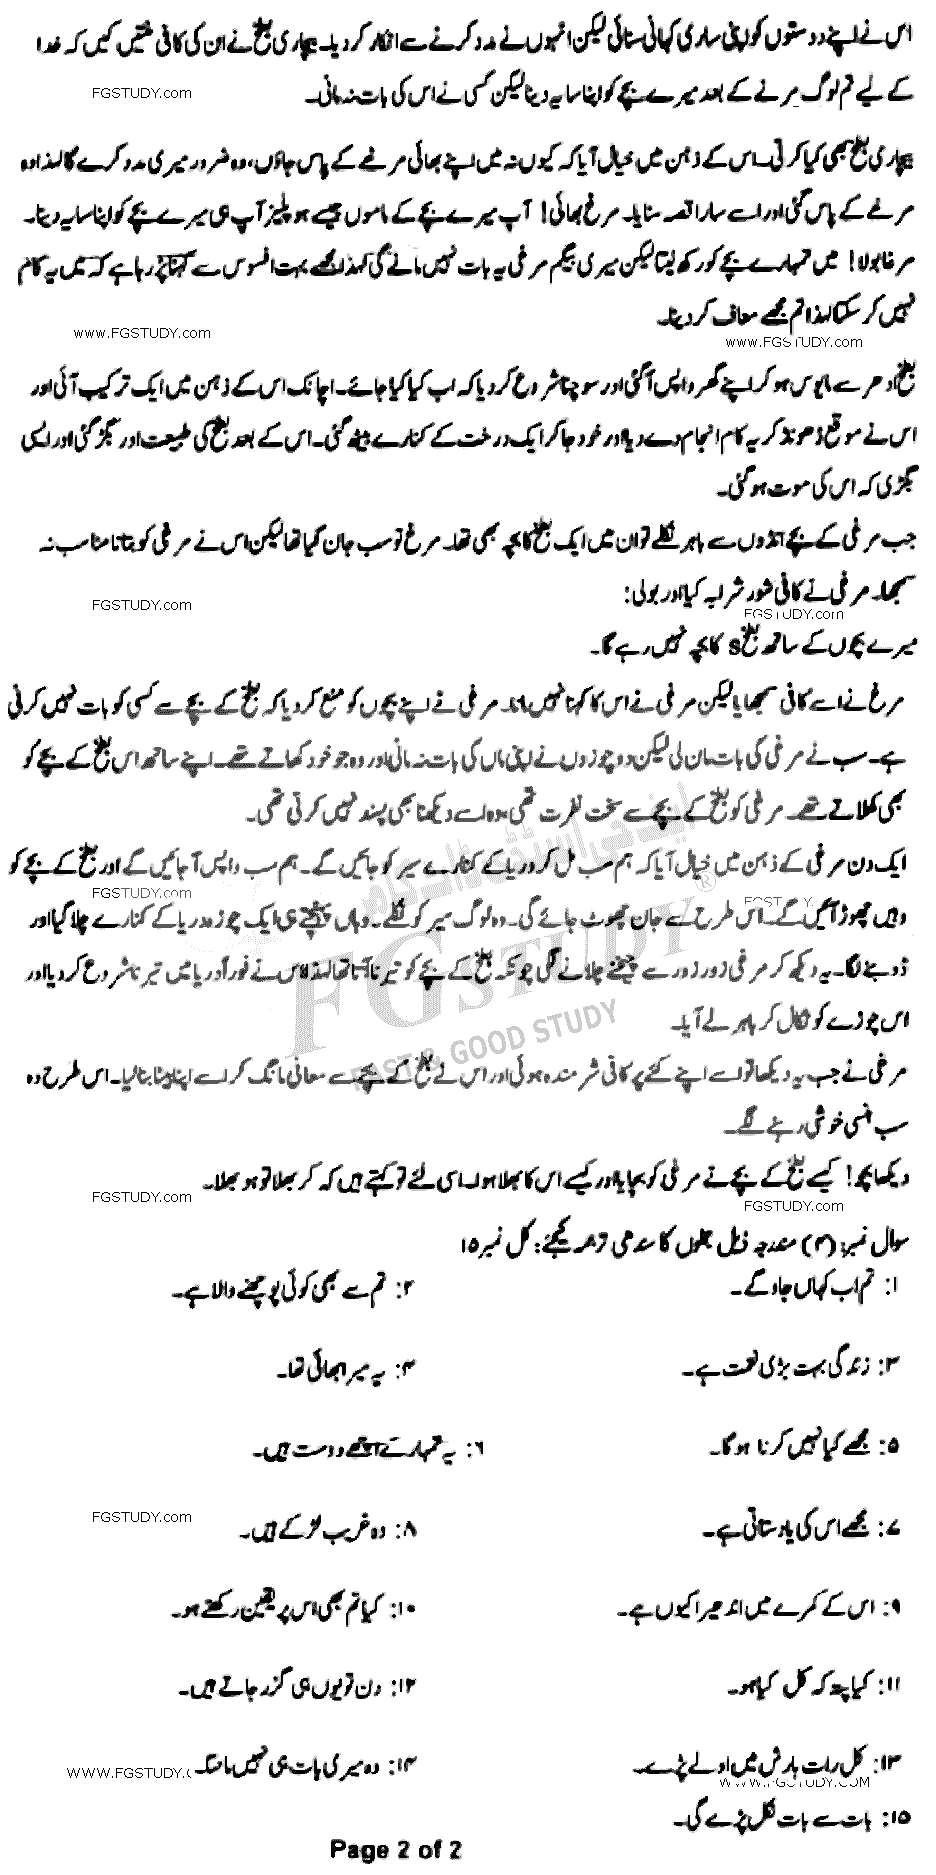 اس نے اپنے دوستوں کو اپنی ساری کہانی سنائی لیکن انہوں نے مدد کرنے سے انکار کر دیا۔ بیچاری بطخ نے ان کی کافی منتیں کیں کہ خدا
کے لیے تم لوگ مرنے کے بعد میرے بچے کو اپنا سایہ دینا لیکن کسی نے اس کی بات نہ مانی۔
FGSTUDY.com
بیچاری بطخ بھی کیا کرتی۔ اس کے ذہن میں خیال آیا کہ کیوں نہ میں اپنے بھائی مرغے کے پاس جاؤں، وہ ضرور میری مدد کرے گا لہذا وہ
مرغے کے پاس گئی اور اسے سارا قصہ سنایا۔ مرغ بھائی! آپ میرے بچے کے ماموں جیسے ہو پلیز آپ ہی میرے بچے کو اپنا سایہ دینا۔
مرغا بولا! میں تمہارے بچے کو رکھ لیتا لیکن میری بیگم مرغی یہ بات نہیں مانے گی لہذا مجھے بہت افسوس سے کہنا پڑ رہا ہے کہ میں یہ کام
نہیں کر سکتا لہذا تم مجھے معاف کر دینا۔
www.FGSTUDY.com
www.FGSTUDY.com
بطخ ادھر سے مایوس ہو کر اپنے گھر واپس آ گئی اور سوچنا شروع کر دیا کہ اب کیا کیا جائے۔ اچانک اس کے ذہن میں ایک ترکیب آئی اور
اس نے موقع ڈھونڈ کر یہ کام انجام دے دیا اور خود جا کر ایک درخت کے کنارے بیٹھ گئی۔ اس کے بعد بطخ کی طبیعت اور بگڑ گئی اور ایسی
بگڑی کہ اس کی موت ہو گئی۔
جب مرغی کے بچے انڈوں سے باہر نکلے تو ان میں ایک بطخ کا بچہ بھی تھا۔ مرغ تو سب جان گیا تھا لیکن اس نے مرغی کو بتانا مناسب نہ
سمجھا۔ مرغی نے کافی شور شرابہ کیا اور بولی:
FGSTUDY.com
FGSTUDY.com
میرے بچوں کے ساتھ بطخ s کا بچہ نہیں رہے گا۔
مرغ نے اسے کافی سمجھایا لیکن مرغی نے اس کا کہنا نہیں مانا۔ مرغی نے اپنے بچوں کو منع کر دیا کہ بطخ کے بچے سے کسی کو بات نہیں کرنی
ہے۔ سب نے مرغی کی بات مان لی لیکن دو چوزوں نے اپنی ماں کی بات نہ مانی اور وہ جو خود کھاتے تھے۔ اپنے ساتھ اس بطخ کے بچے کو
بھی کھلاتے تھے۔ مرغی کو بطخ کے بچے سے سخت نفرت تھی، وہ اسے دیکھنا بھی پسند نہیں کرتی تھی۔
ایک دن مرغی کے ذہن میں خیال آیا کہ ہم سب مل کر دریا کے کنارے سیر کو جائیں گے۔ ہم سب واپس آ جائیں گے اور بطخ کے بچے کو
FGSTUDY.com
وہیں چھوڑ آئیں گے۔ اس طرح سے جان چھوٹ جائے گی۔ وہ لوگ سیر کو نکلے۔ وہاں پہنچتے ہی ایک چوزہ دریا کے کنارے چلا گیا اور
ڈوبنے لگا۔ یہ دیکھ کر مرغی زور زور سے چیخنے چلانے لگی چونکہ بطخ کے بچے کو تیرنا آتا تھا لہذا اس نے فوراً دریا میں تیرنا شروع کر دیا اور
اس چوزے کو نکال کر باہر لے آیا۔
FGSTUDY ®
FAST & GOOD STUDY
مرغی نے جب یہ دیکھا تو اسے اپنے کئے پر کافی شرمندہ ہوئی اور اس نے بطخ کے بچے سے معافی مانگ کر اسے اپنا بیٹا بنا لیا۔ اس طرح وہ
سب ہنسی خوشی رہنے لگے۔
دیکھا بچو! کیسے بطخ کے بچے نے مرغی کو بچایا اور کیسے اس کا بھلا ہوا۔ اسی لئے تو کہتے ہیں کہ کر بھلا تو ہو بھلا۔
FGSTUDY.com
FGSTUDY.com
سوال نمبر: (۴) مندرجہ ذیل جملوں کا سندھی ترجمہ کیجئے: کل نمبر ۱۵
۱: تم اب کہاں جاؤ گے۔
۲: تم سے بھی کوئی پوچھنے والا ہے۔
۳: زندگی بہت بڑی نعمت ہے۔
۴: یہ میرا بھائی تھا۔
۵: مجھے کیا نہیں کرنا ہوگا۔
۶: یہ تمہارے اچھے دوست ہیں۔
۷: مجھے اس کی یاد ستاتی ہے۔
۸: وہ غریب لڑکے ہیں۔
FGSTUDY.com
۹: اس کے کمرے میں اندھیرا کیوں ہے۔
۱۰: کیا تم بھی اس پر یقین رکھتے ہو۔
۱۱: کیا پتہ کہ کل کیا ہو۔
۱۲: دن تو یوں ہی گزر جاتے ہیں۔
۱۳: کل رات بارش میں اولے پڑے۔
۱۴: وہ میری بات ہی نہیں مانتا۔
WWW.FGSTUDY.C
WWW.FGSTUDY.COM
۱۵: بات سے بات نکل پڑے گی۔
Page 2 of 2